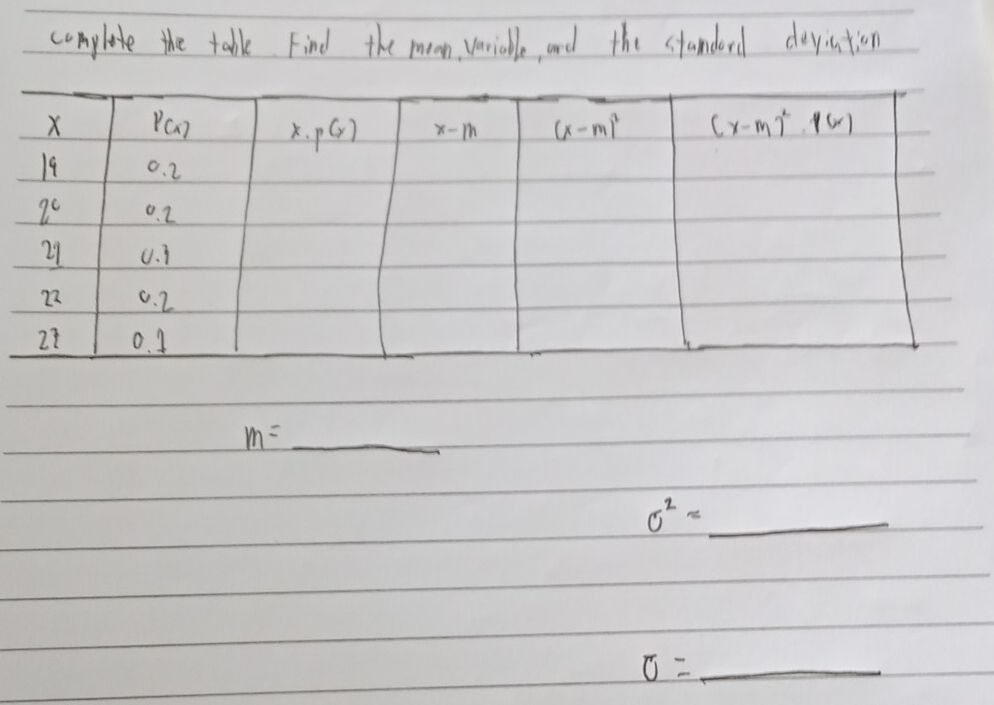 complete the table Find the mean, variable, and the standard deviation
X P(x) x.p(x) x-m (x-m)² (x-m)² . P(x)
19 0.2
20 0.2
21 0.3
22 0.2
23 0.1
m=
σ² =
σ =